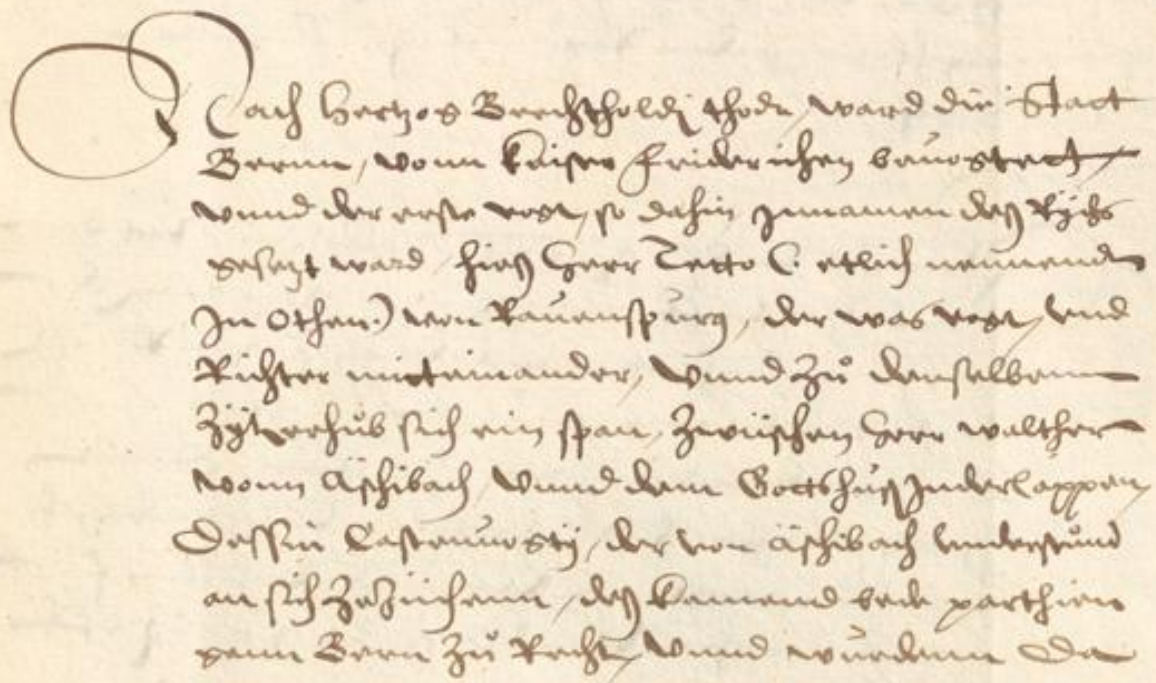 Nach Hertzog Berchtholdj thode, ward die Statt
Bernn, vonn keiser Friderichen bevogtett,
vnnd der erste vogt, so dahin Jnnamen deß Rychs
gesetzt ward, hieß Herr Zetto (: etlich nennend
Jn Othen:) von Ravenspurg, der was vogt, vnd
Richter mitteinander, Vnnd zů denselbenn
zyt erhůb sich ein span, zwüschen Herr walther
vonn Äschibach, Vnnd dem Gottshuß Jnderlappen,
Dessin Castenvogty, der von Äschibach vnderstůnd
an sich zezüchenn, deß kamend bede parthien
genn Bern zů Recht, Vnnd wurdenn Da